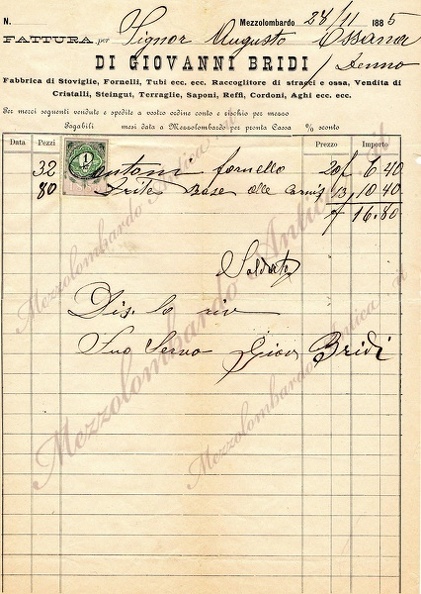 N. Mezzolombardo 28/11 1885
FATTURA per Signor Augusto Ossanna
DI GIOVANNI BRIDI / Denno
Fabbrica di Stoviglie, Fornelli, Tubi ecc. ecc. Raccoglitore di stracci e ossa, Vendita di
Cristalli, Steingut, Terraglie, Saponi, Reffi, Cordoni, Aghi ecc. ecc.
Per merci seguenti vendute e spedite a vostro ordine conto e rischio per mezzo
Pagabili mesi data a Mezzolombardo per pronta Cassa % sconto
Data Pezzi Prezzo Importo
32 fornello 20 f 6.40
80 Base alle 13 10.40
f 16.80
Saldato
Dis. lo riv
Suo Servo Giov Bridi
Mezzolombardo Antica .at
Mezzolombardo Antica .at